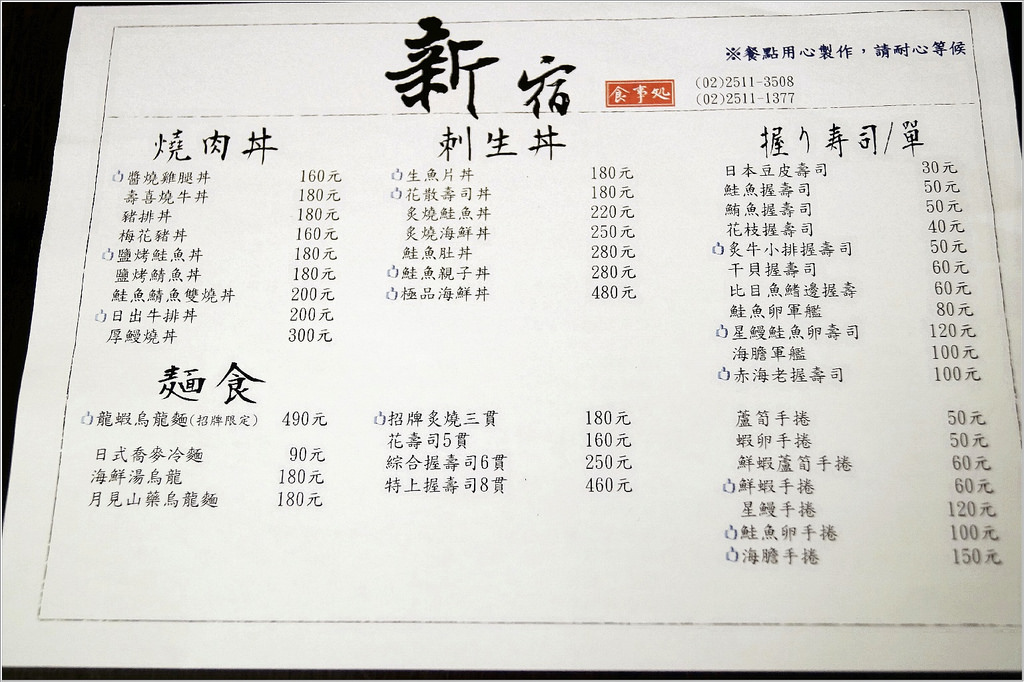 新宿 食事処
※餐點用心製作，請耐心等候
(02)2511-3508
(02)2511-1377
燒肉丼
醬燒雞腿丼 160元
壽喜燒牛丼 180元
豬排丼 180元
梅花豬丼 160元
鹽烤鮭魚丼 180元
鹽烤鯖魚丼 180元
鮭魚鯖魚雙燒丼 200元
日出牛排丼 200元
厚鰻燒丼 300元
麵食
龍蝦烏龍麵(招牌限定) 490元
日式喬麥冷麵 90元
海鮮湯烏龍 180元
月見山藥烏龍麵 180元
刺生丼
生魚片丼 180元
花散壽司丼 180元
炙燒鮭魚丼 220元
炙燒海鮮丼 250元
鮭魚肚丼 280元
鮭魚親子丼 280元
極品海鮮丼 480元
招牌炙燒三貫 180元
花壽司5貫 160元
綜合握壽司6貫 250元
特上握壽司8貫 460元
握り寿司/單
日本豆皮壽司 30元
鮭魚握壽司 50元
鮪魚握壽司 50元
花枝握壽司 40元
炙牛小排握壽司 50元
干貝握壽司 60元
比目魚鰭邊握壽 60元
鮭魚卵軍艦 80元
星鰻鮭魚卵壽司 120元
海膽軍艦 100元
赤海老握壽司 100元
蘆筍手捲 50元
蝦卵手捲 50元
鮮蝦蘆筍手捲 60元
鮮蝦手捲 60元
星鰻手捲 120元
鮭魚卵手捲 100元
海膽手捲 150元